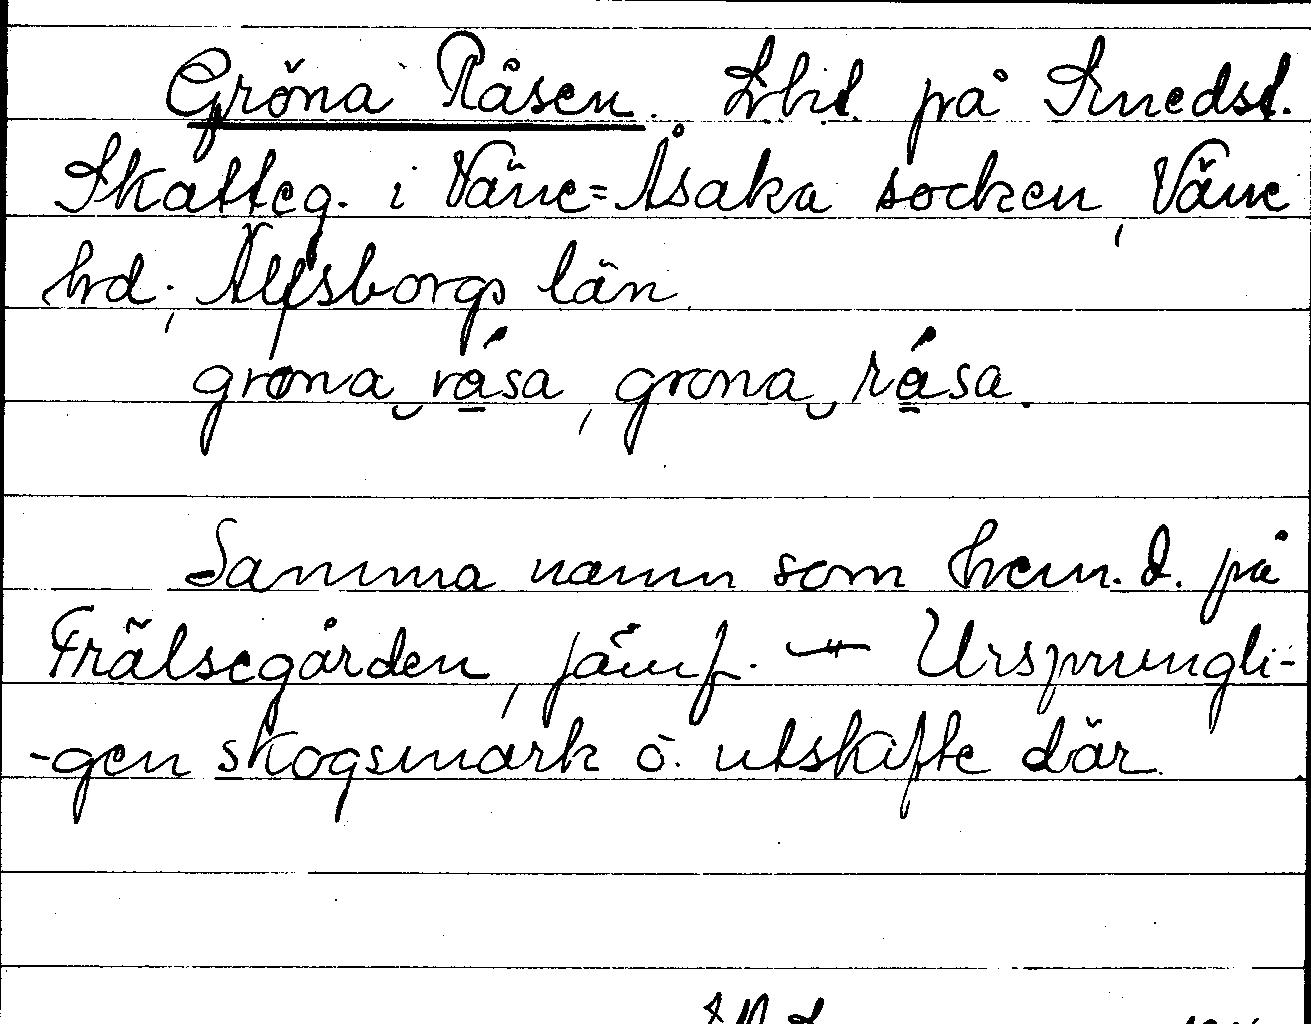 Gröna Råsen. Lht. på Smedst.
Skatteg. i Väne=Åsaka socken, Väne
hd., Älfsborgs län.
grøna råsa, grona råsa.
Samma namn som hem. d. på
Frälsegården, jämf. — Ursprungli-
-gen skogsmark o. utskifte där.